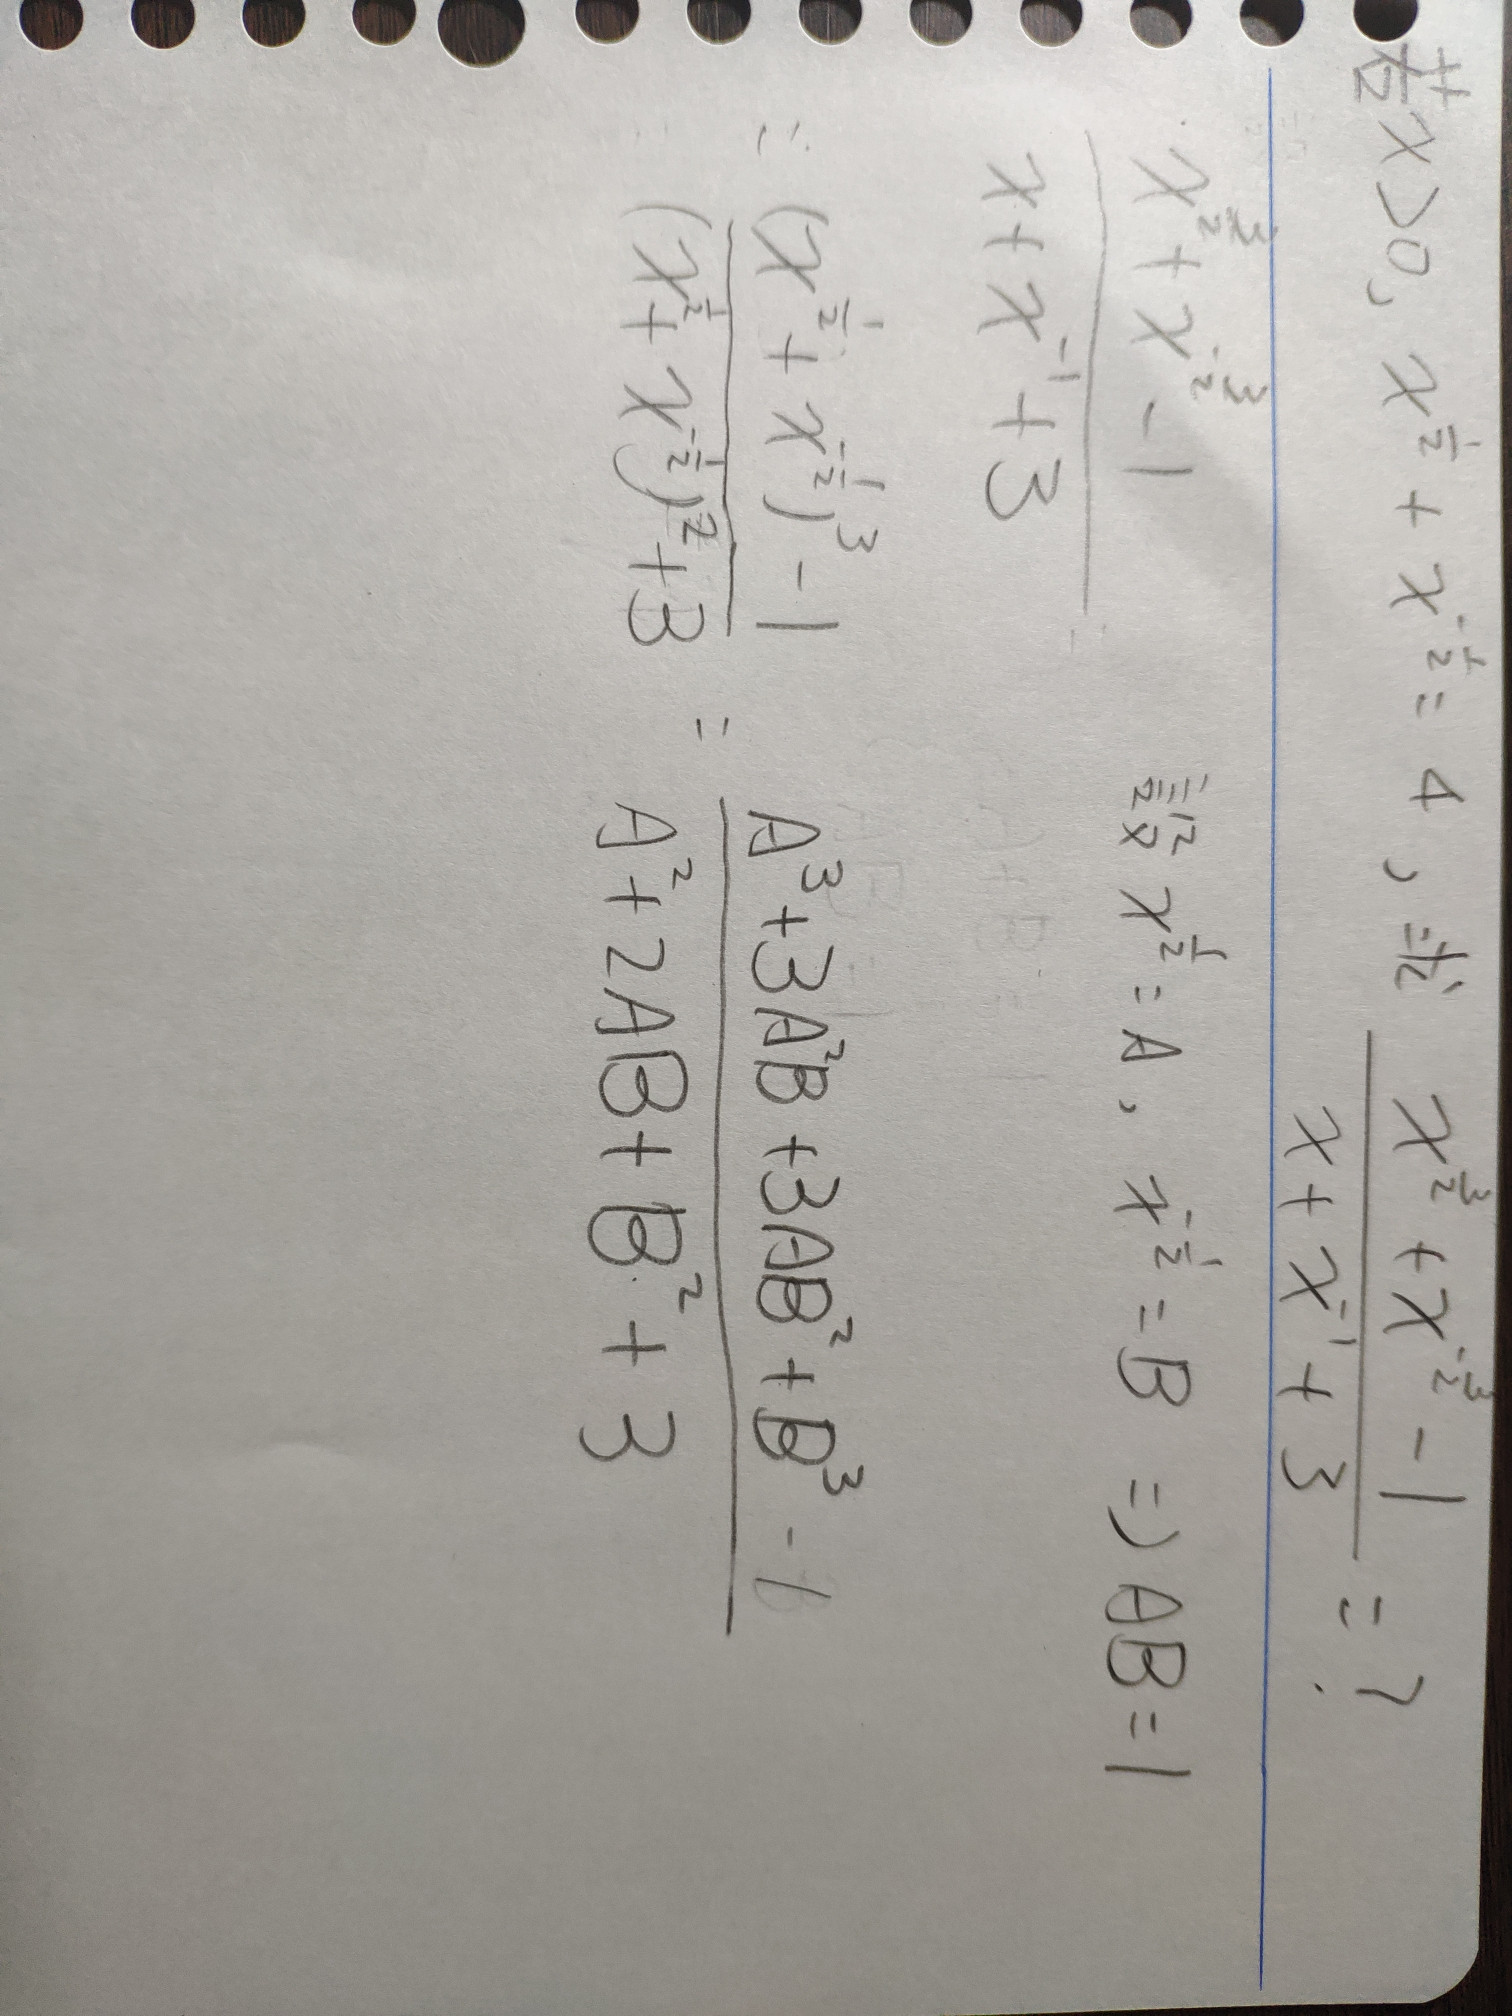 若x>0, x^{1/2} + x^{-1/2} = 4, 求 \frac{x^{3/2} + x^{-3/2} - 1}{x + x^{-1} + 3} = ?
\frac{x^{3/2} + x^{-3/2} - 1}{x + x^{-1} + 3} 設 x^{1/2} = A, x^{-1/2} = B => AB = 1
= \frac{(x^{1/2} + x^{-1/2})^3 - 1}{(x^{1/2} + x^{-1/2})^2 + 3} = \frac{A^3 + 3A^2B + 3AB^2 + B^3 - 1}{A^2 + 2AB + B^2 + 3}